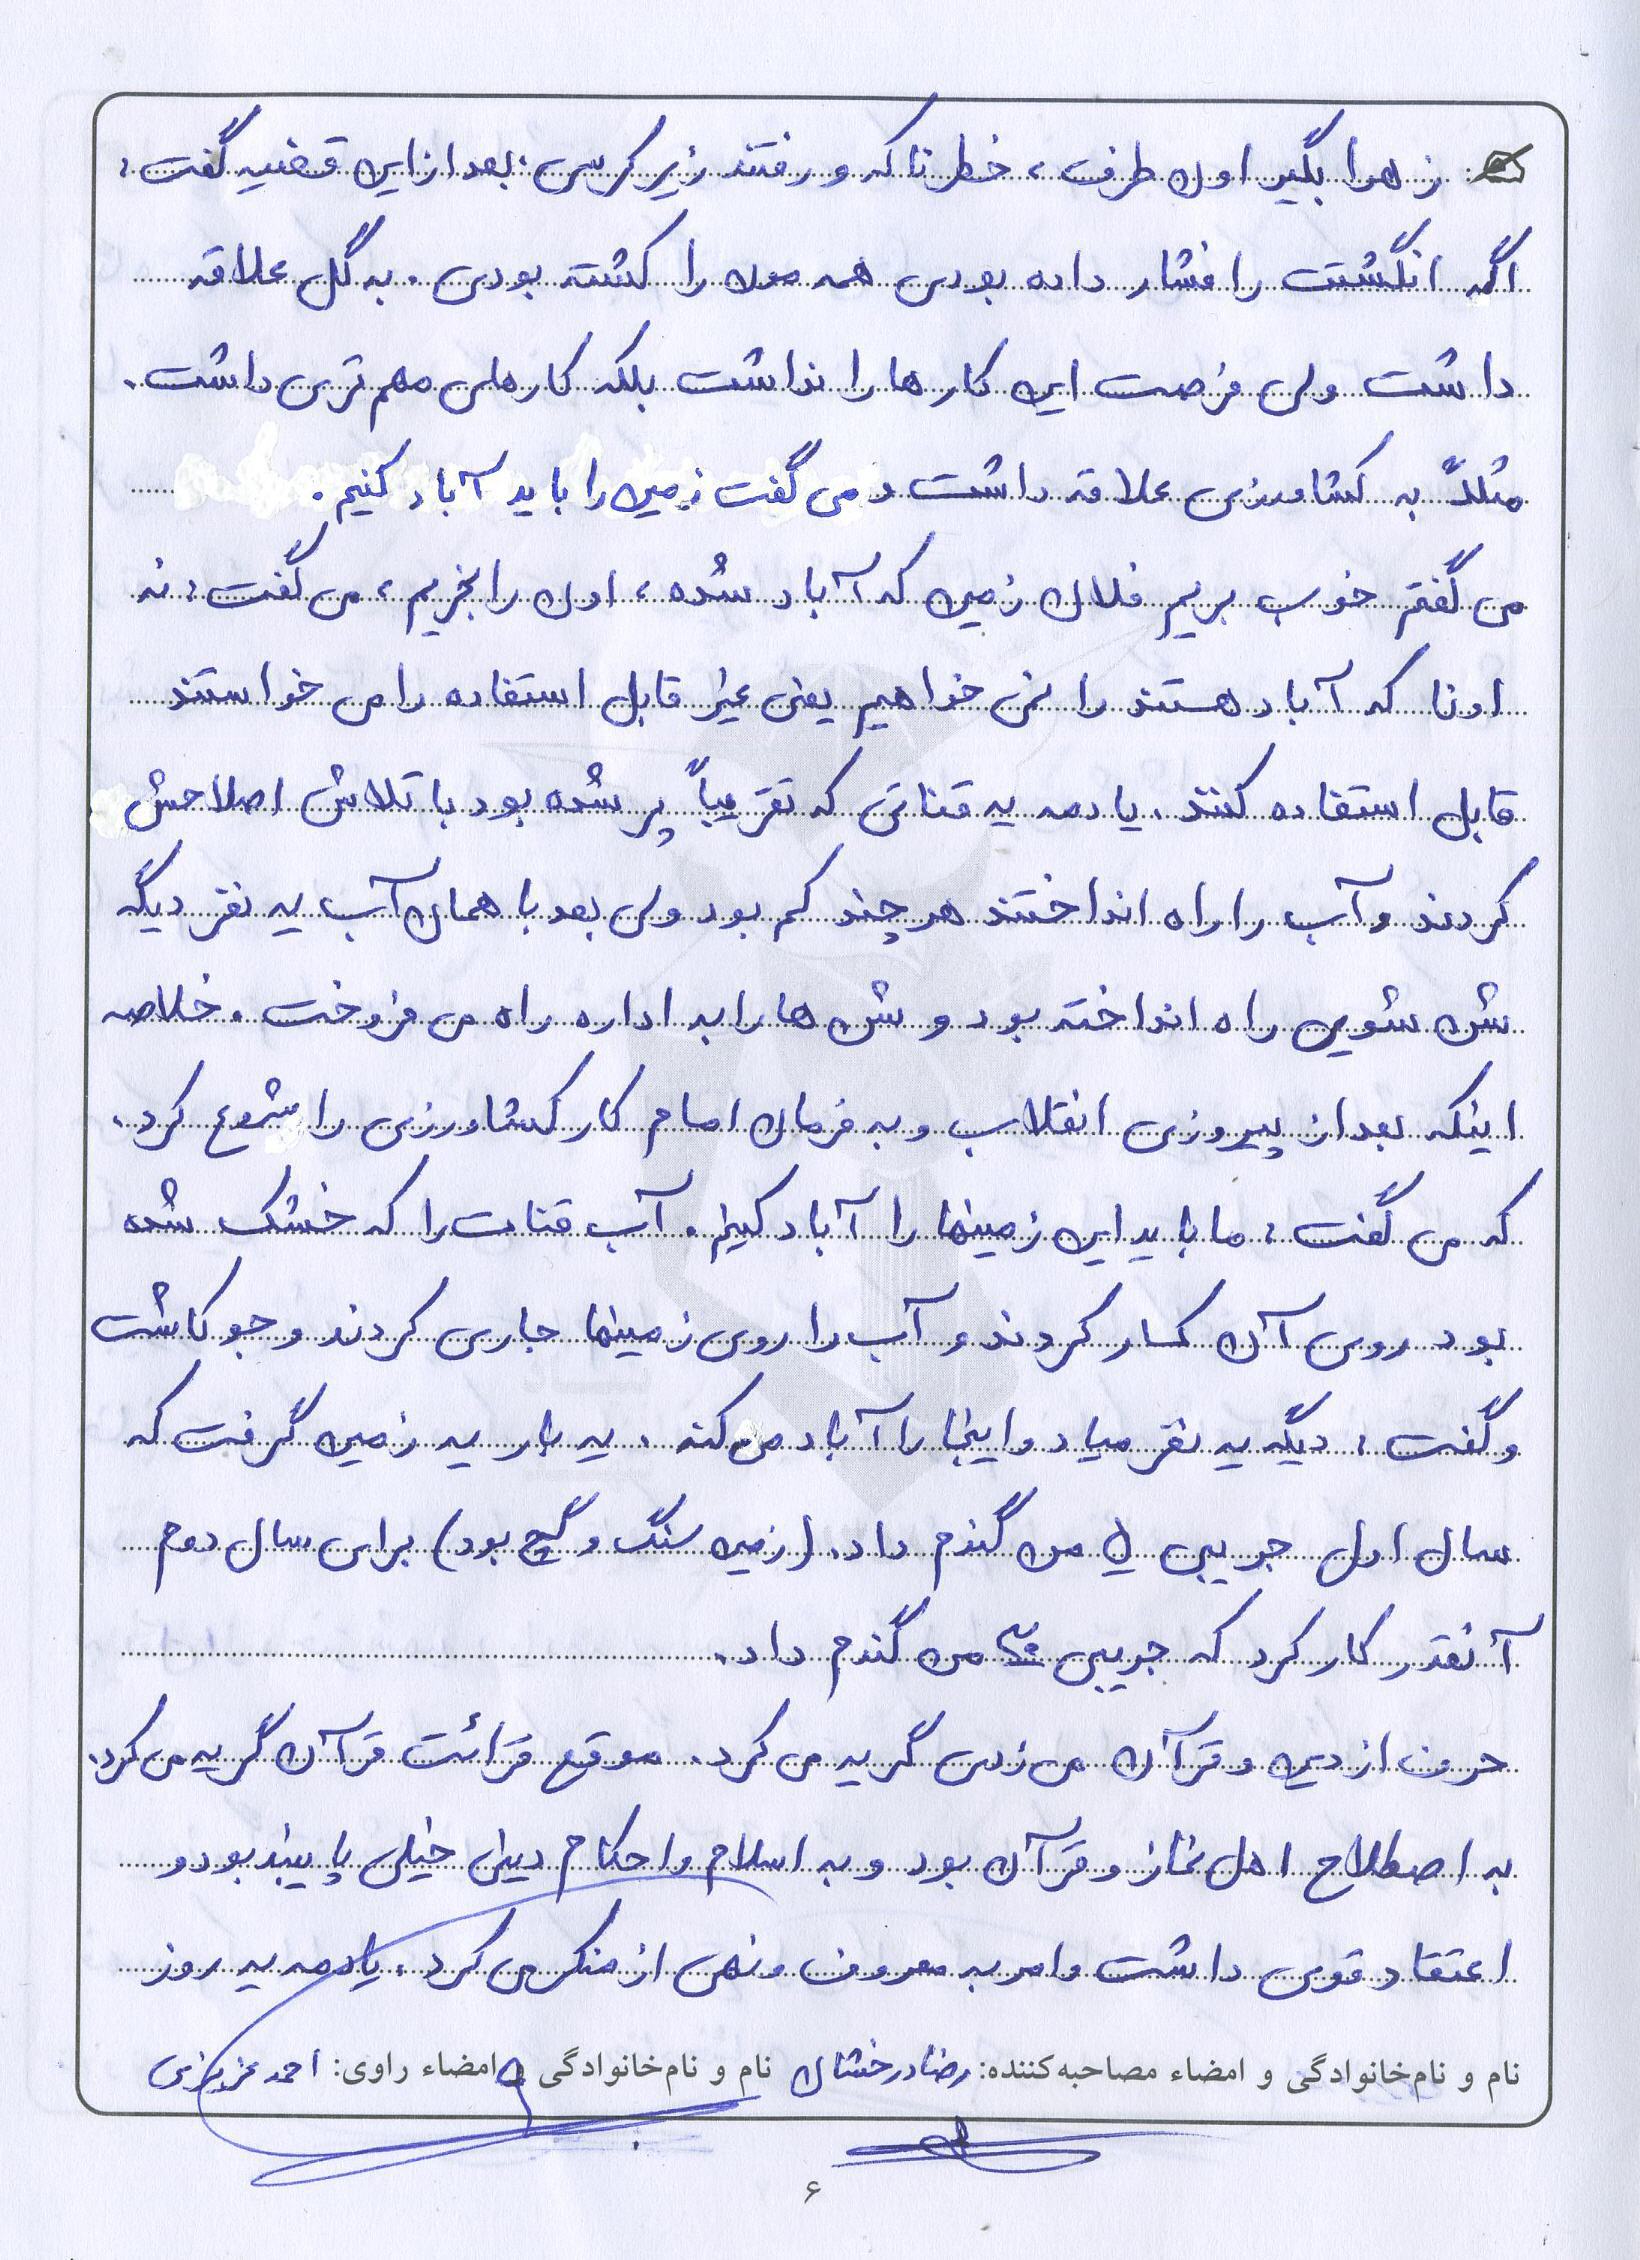 زهرا بگیر اون طرف، خطرناکه و رفتند زیر کرسی. بعد از این قضیه گفت:
اگه انگشتت را فشار داده بودی همه مون را کشته بودی. به گل علاقه
داشت ولی فرصت این کارها را نداشت بلکه کارهای مهم تری داشت.
مثلاً به کشاورزی علاقه داشت و می گفت زمین را باید آباد کنیم.
می گفتم خوب بریم فلان زمین که آباد شده، اون را بخریم، می گفت: نه
اونا که آباد هستند را نمی خواهیم یعنی غیر قابل استفاده را می خواستند
قابل استفاده کنند. یادمه یه قناتی که تقریباً پر شده بود با تلاش اصلاحش
کردند و آب را راه انداختند هر چند کم بود ولی بعد با همان آب یه نفر دیگه
شن شویی راه انداخته بود و شن ها را به اداره راه می فروخت. خلاصه
اینکه بعد از پیروزی انقلاب و به فرمان امام کار کشاورزی را شروع کرد.
که می گفت: ما باید این زمینها را آباد کنیم. آب قنات را که خشک شده
بود روی آن کار کردند و آب را روی زمینها جاری کردند و جو کاشت
و گفت: دیگه یه نفر میاد و اینجا را آباد می کنه. یه بار یه زمین گرفت که
سال اول جریبی ۵ من گندم داد. (زمین سنگ و گچ بود) برای سال دوم
آنقدر کار کرد که جریبی من گندم داد.
حرف از دین و قرآن می زدی گریه می کرد. موقع قرائت قرآن گریه می کرد.
به اصطلاح اهل نماز و قرآن بود و به اسلام و احکام دینی خیلی پایبند بود و
اعتقاد قوی داشت و امر به معروف و نهی از منکر می کرد. یادمه یه روز
نام و نام‌خانوادگی و امضاء مصاحبه‌کننده: رضا درخشان نام و نام‌خانوادگی و امضاء راوی: احمد عزیزی
۶